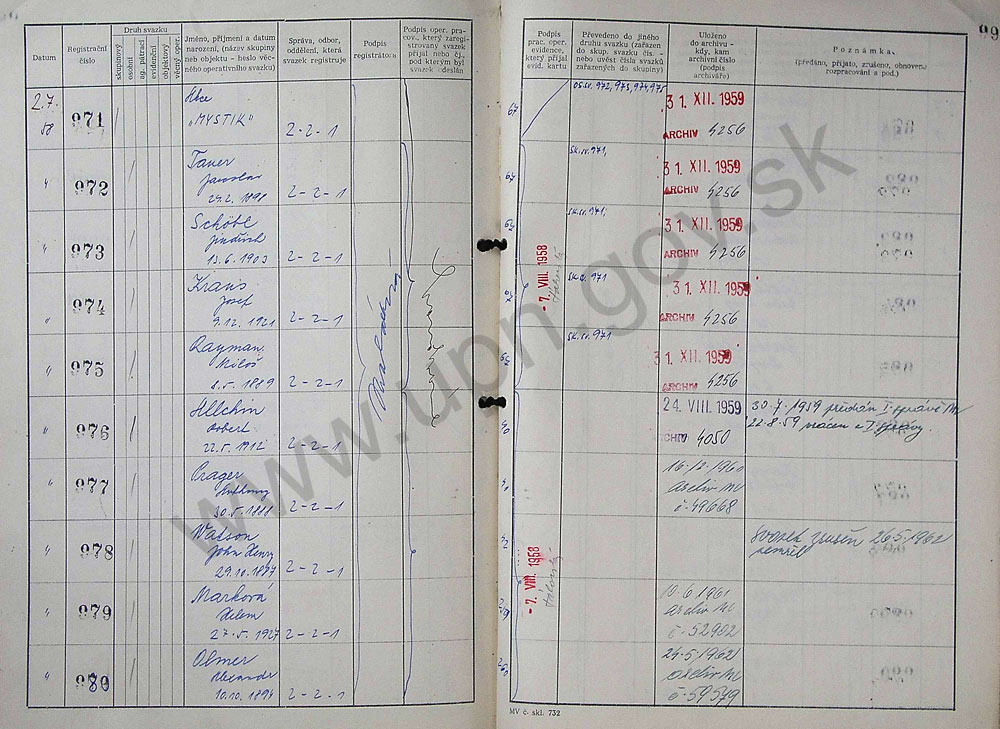 Datum
Registrační číslo
Druh svazku
skupinový
osobní
ag. pátrací
evidenční
objektový
věcný oper.
Jméno, příjmení a datum
narození, (název skupiny
neb objektu - heslo věc-
ného operativního svazku)
Správa, odbor,
oddělení, která
svazek registruje
Podpis
registrátora
Podpis oper. pra-
cov., který zareg-
istrovaný svazek
přijal nebo čj.
pod kterým byl
svazek odeslán)
Podpis
prac. oper.
evidence,
který přijal
evid. kartu
Převedeno do jiného
druhu svazku (zařazen
do skup. svazku čís. -
nebo uvést čísla svazků
zařazených do skupiny)
Uloženo
do archivu -
kdy, kam
archivní číslo
(podpis
archiváře)
Poznámka.
(předáno, přijato, zrušeno, obnoveno
rozpracování a pod.)
2.7.
58
971
Akce
"MYSTIK"
2-2-1
972, 973, 974, 975
31. XII. 1959
ARCHIV 4256
"
972
Tauer
Jaroslav
24.2. 1898
2-2-1
sk.sv. 971,
31. XII. 1959
ARCHIV 4256
"
973
Schöbl
Jindřich
13.6. 1903
2-2-1
sk.sv. 971,
31. XII. 1959
ARCHIV 4256
"
974
Kraus
Josef
9.12. 1921
2-2-1
971
31. XII. 1959
ARCHIV 4256
- 7. VIII. 1958
"
975
Rayman
Miloš
8.5. 1889
2-2-1
sk.sv. 971
31. XII. 1959
ARCHIV 4256
"
976
Allchin
22.5. 1912
2-2-1
24. VIII. 1959
ARCHIV 4050
30.7.1959 předán I. správě MV
22.8.59 vrácen z I. správy.
"
977
Prager
Anthony
30.5. 1888
2-2-1
archiv MV
č-49668
"
978
Watson
John Henry
29.10. 1897
2-2-1
Svazek zrušen 26.5.1962
zemřel
- 7. VIII. 1958
"
979
Marková
Helena
27.5. 1927
2-2-1
10.6.1961
archiv MV
č-52902
"
980
Olmer
Alexander
10.10. 1894
2-2-1
24.5.1962
archiv MV
č-59579
MV č. skl. 732
www.upn.gov.sk